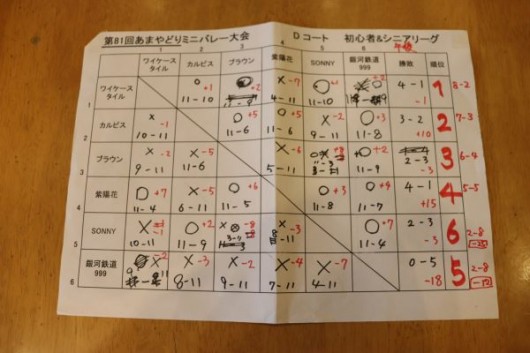 第81回あまやどりミニバレー大会 Dコート 初心者&シニアリーグ
1 2 3 4 5 6
ワイケースタイル カルピス ブラウン 紫陽花 SONNY 銀河鉄道999 勝敗 順位
1 ワイケースタイル ○ +1 11-10 +2 × -7 4-11 ○ +1 11-10 4-1 -1 1 8-2
2 カルピス × -1 10-11 ○ +5 11-6 ○ +5 11-6 × -2 9-11 ○ +3 11-8 3-2 +10 2 7-3
3 ブラウン × -2 9-11 × -5 6-11 × -6 5-11 ○ +2 11-9 2-3 -3 3 6-4
4 紫陽花 ○ +7 11-4 × -5 6-11 ○ +6 11-5 ○ +3 11-8 ○ +4 11-7 4-1 +15 4 5-5
5 SONNY × -1 10-11 ○ +2 11-9 × -3 8-11 ○ +7 11-4 2-3 -3 6 2-8
6 銀河鉄道999 -2 × -3 8-11 × -2 9-11 × -4 7-11 × -7 4-11 0-5 -18 5 2-8